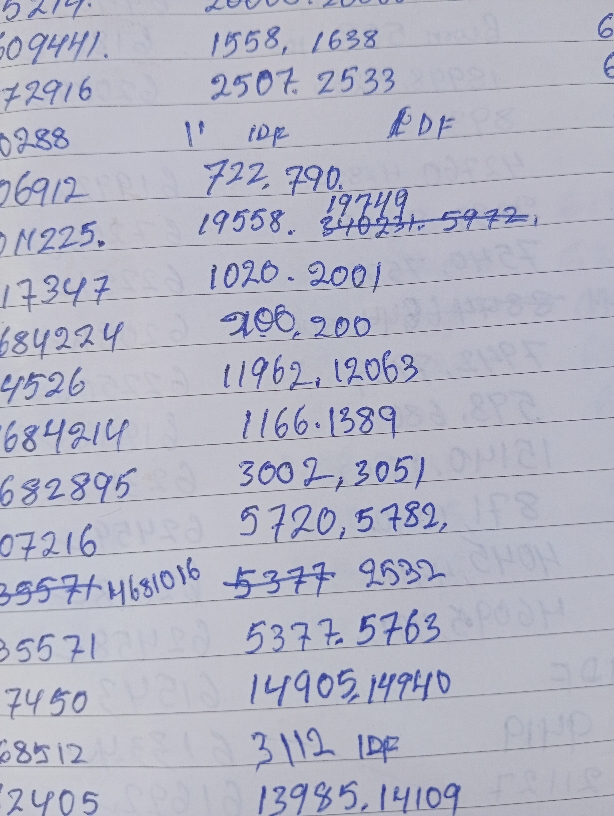 609441. 1558, 1638 6
72916 2507. 2533 6
0288 11 IDF IDF
06912 722. 790.
011225. 19558. 19749 340231. 5972,
17347 1020. 2001
684224 200, 200
4526 11962, 12063
684214 1166. 1389
682895 3002, 3051
07216 5720, 5782,
35571 4681016 5377 2532
35571 5377. 5763
7450 14905, 14940
68512 3112 IDF
2405 13985, 14109